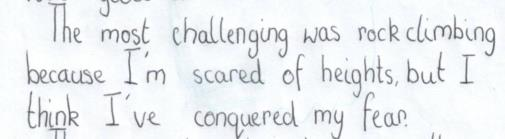 The most challenging was rock climbing
because I'm scared of heights, but I
think I've conquered my fear.